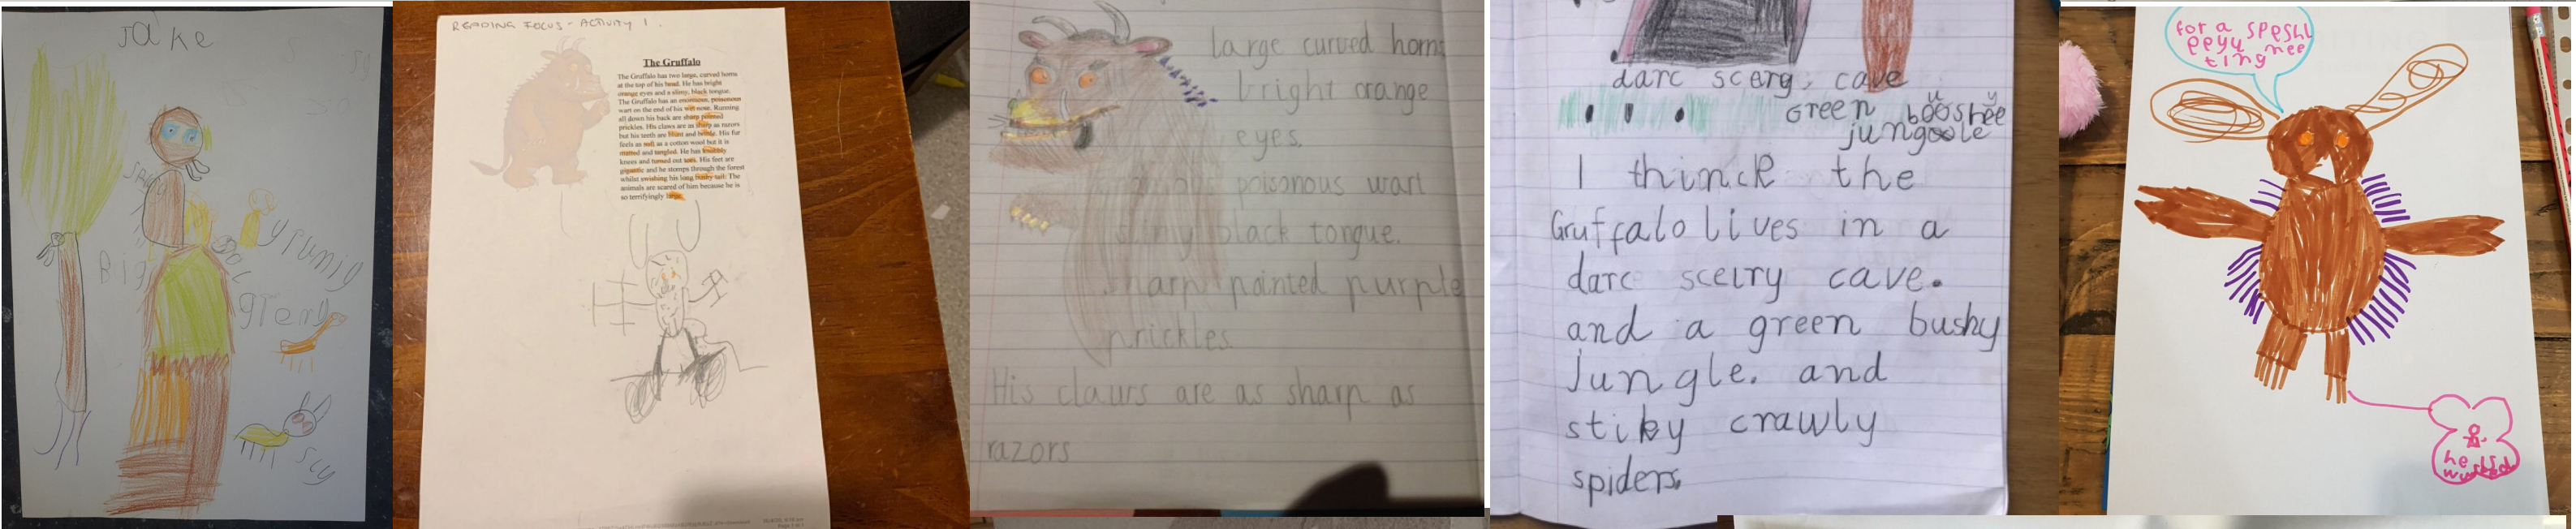 Jake
Big
grumpy
sly
READING FOCUS - ACTIVITY 1.
The Gruffalo
The Gruffalo has two large, curved horns
at the top of his head. He has bright
orange eyes and a slimy, black tongue.
The Gruffalo has an enormous, poisonous
wart on the end of his wet nose. Running
all down his back are sharp pointed
prickles. His claws are as sharp as razors
but his teeth are blunt and brittle. His fur
feels as soft as a cotton wool but it is
matted and tangled. He has knobbly
knees and turned out toes. His feet are
gigantic and he stomps through the forest
whilst swishing his long bushy tail. The
animals are scared of him because he is
so terrifyingly large.
large curved horns
bright orange
eyes.
poisonous wart
slimy black tongue.
sharp pointed purple
prickles.
His claws are as sharp as
razors
darc scery cave
Green booshee
jungoole
I thinck the
Gruffalo lives in a
darc scelry cave.
and a green bushy
jungle. and
stiky crawly
spiders.
for a speshl
peyu nee
ting
he